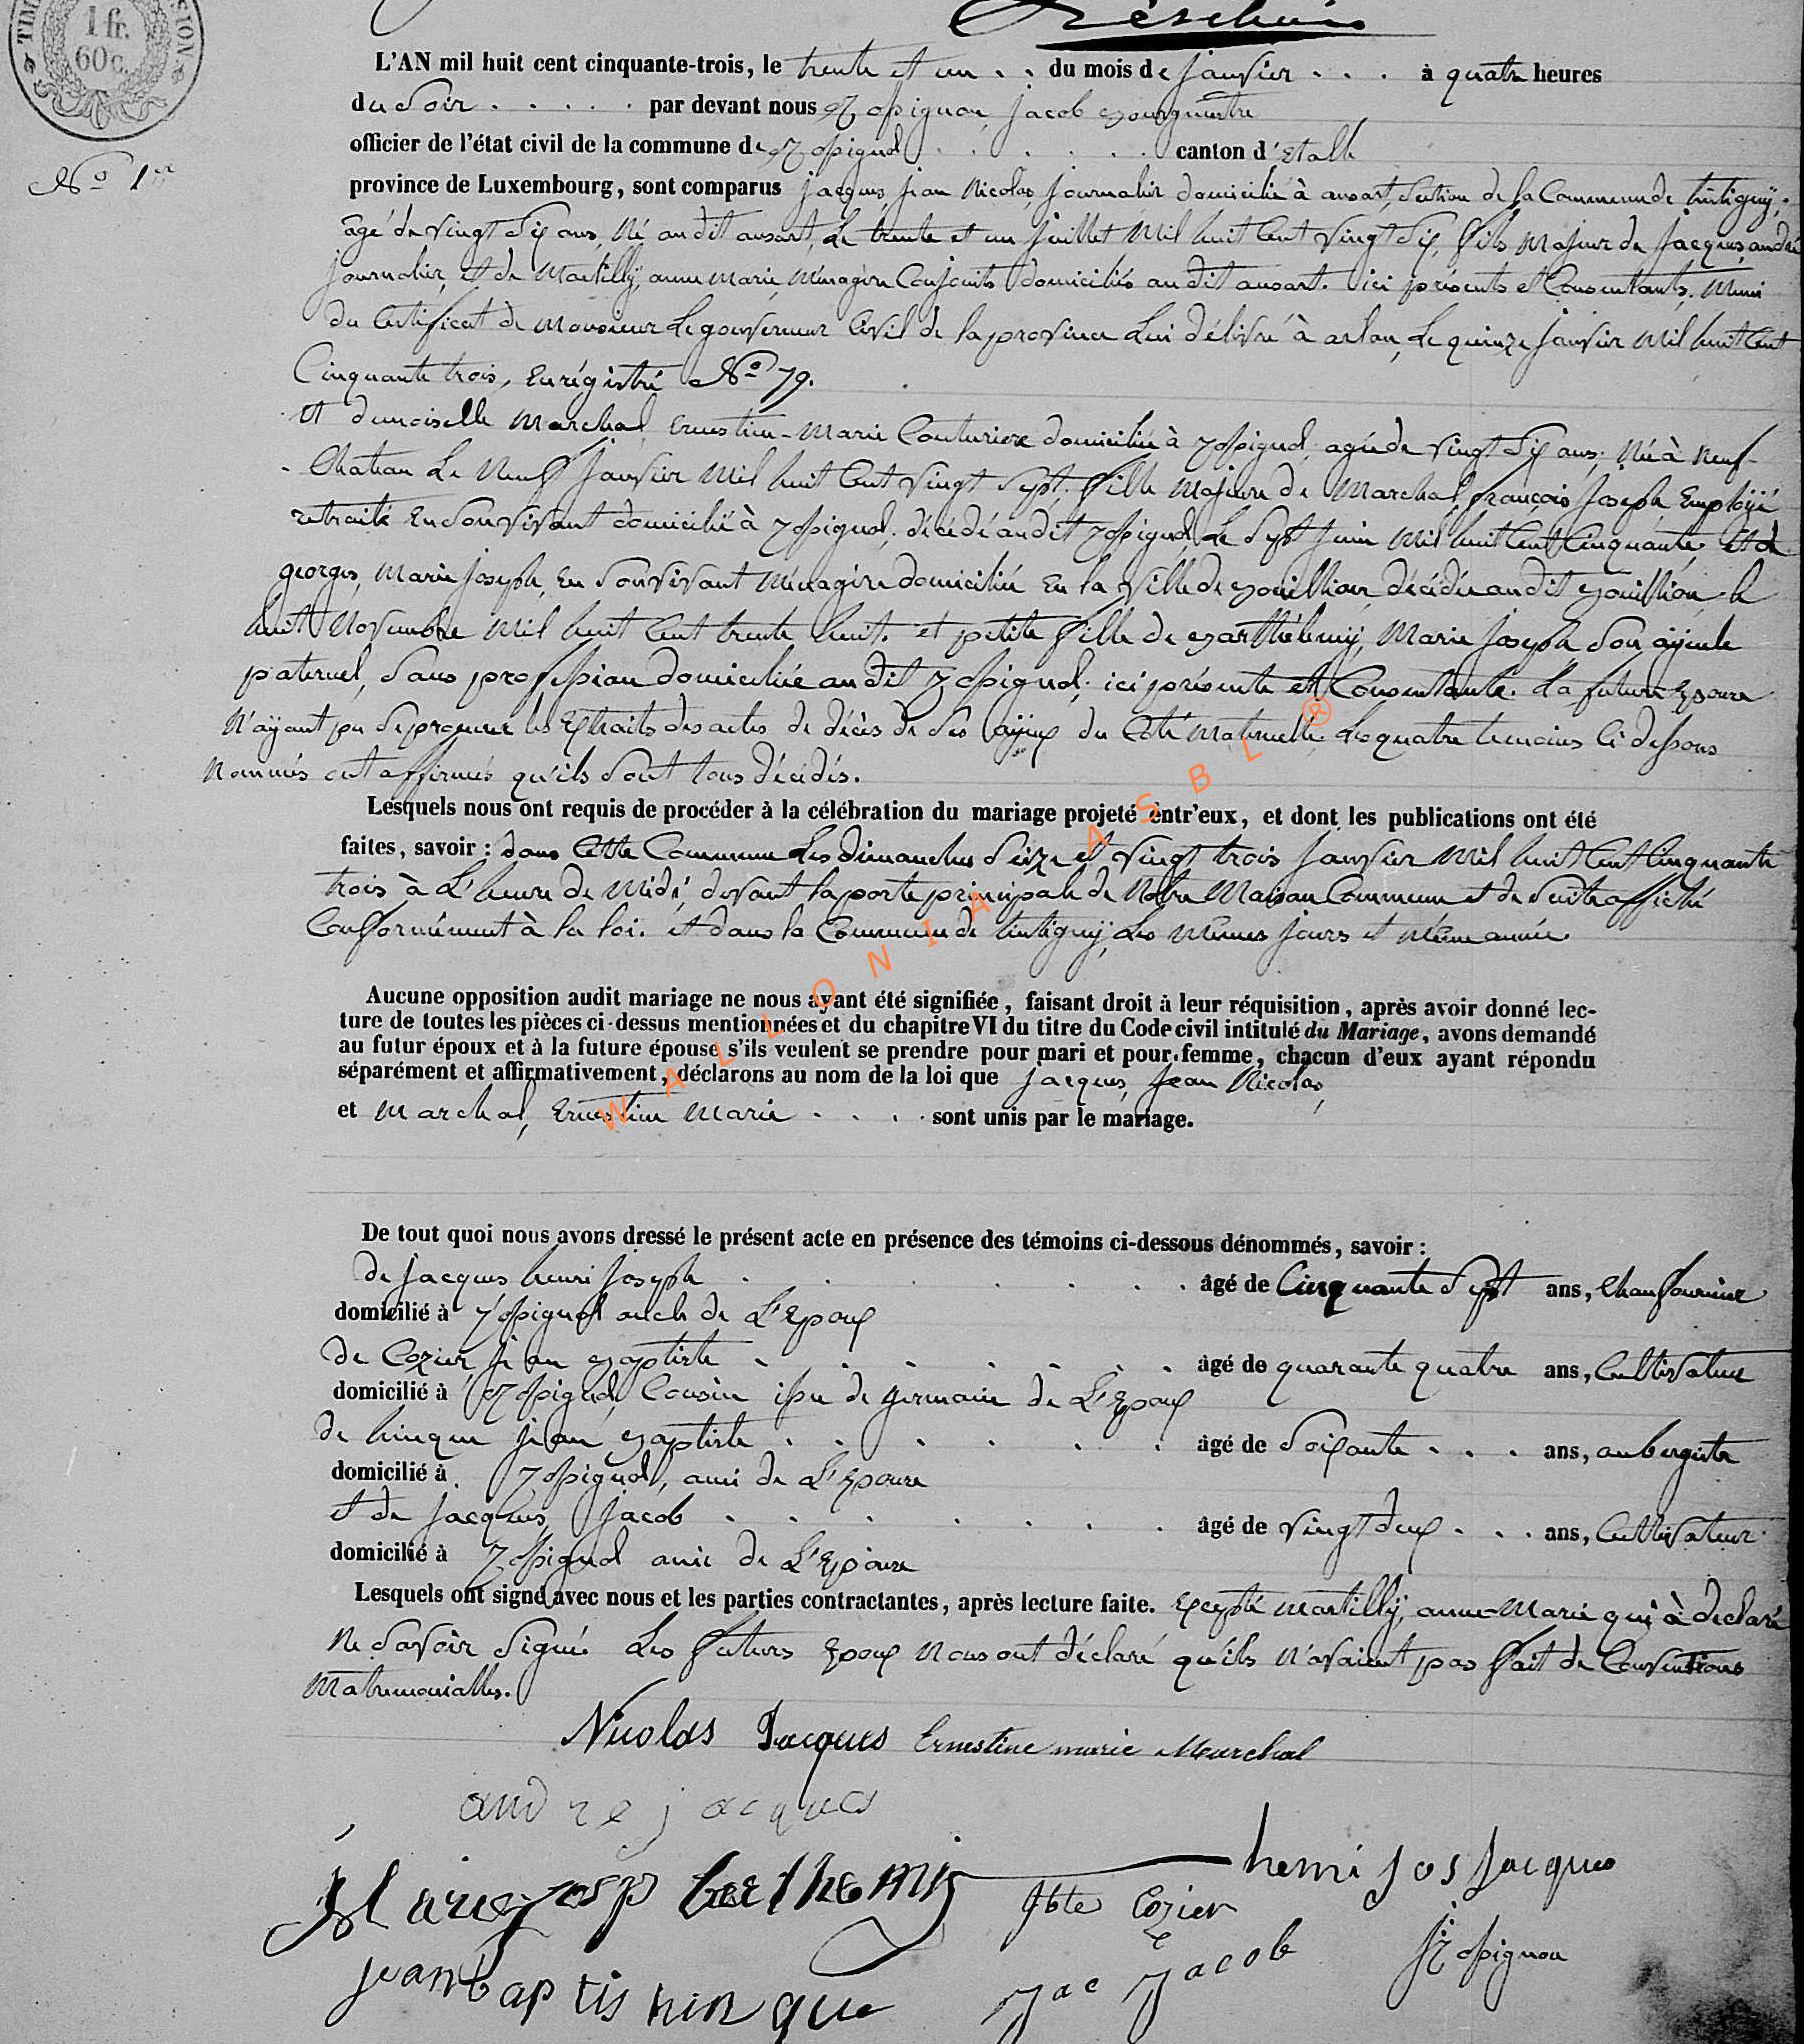 TIM
1 fr.
60 c.
ION
L'AN mil huit cent cinquante-trois, le trente et un . . du mois de janvier . . . à quatre heures
du Soir . . . . . par devant nous Rossignon, jacob Bourguestre
officier de l'état civil de la commune de Rossignol . . . . . . canton d'Etalle
N° 1er
province de Luxembourg, sont comparus jacques, jean Nicolas, journalier domicilié à ansart, Section de la Commune de tintigny,
âgé de vingt Six ans, Né au dit ansart, Le trente et un juillet Mil huit Cent vingt Six, fils Majeur de jacques, andré
journalier, et de Martilly, anne Marie, Ménagère Conjoints domiciliés au dit ansart. ici présents et Consentants. Muni
du Certificat de Monsieur Le gouverneur Civil de la province Lui délivré à arlon, Le quinze janvier Mil huit Cent
Cinquante trois, Enrégistré N° 79.
Et demoiselle Marchal, Ernestine-Marie Couturière domiciliée à rossignol, agée de vingt Six ans, Née à Neuf-
Chateau Le Neuf janvier Mil huit Cent vingt Sept. fille Majeure de Marchal, françois joseph Employé
retraité En Son vivant domicilié à rossignol, décédé au dit rossignol, Le Sept juin Mil huit Cent Cinquante, et de
georges, Marie joseph, En Son vivant Ménagère domiciliée En la ville de Bouillion, décédée au dit Bouillion, le
huit Novembre Mil huit Cent trente huit. et petite fille de Barthélemy, Marie joseph Son ayeule
paternel, Sans profession domiciliée au dit rossignol, ici présente et Consentante. La future Epouse
N'ayant pu Se procurer les Extraits des actes de décès de Ses ayeux du Côté Maternelle. Les quatre temoins Ci dessous
Nommés ont affirmés qu'ils Sont tous décédés.
Lesquels nous ont requis de procéder à la célébration du mariage projeté entr'eux, et dont les publications ont été
faites, savoir : dans Cette Commune Les dimanches Seize et vingt trois janvier Mil huit Cent Cinquante
trois à L'heure de Midi, devant la porte principale de Notre Maison Commune et de Suite affiché
Conformément à la loi. et dans la Commune de tintigny, Les Mêmes jours et Même année.
Aucune opposition audit mariage ne nous ayant été signifiée, faisant droit à leur réquisition, après avoir donné lec-
ture de toutes les pièces ci-dessus mentionnées et du chapitre VI du titre du Code civil intitulé du Mariage, avons demandé
au futur époux et à la future épouse s'ils veulent se prendre pour mari et pour femme, chacun d'eux ayant répondu
séparément et affirmativement, déclarons au nom de la loi que jacques, jean Nicolas,
et Marchal, Ernestine Marie . . . . sont unis par le mariage.
De tout quoi nous avons dressé le présent acte en présence des témoins ci-dessous dénommés, savoir :
de jacques henri joseph . . . . . . . âgé de Cinquante Sept ans, Chaufournier
domicilié à rossignol oncle de L'Epoux
de Cozier, jean Baptiste . . . . . . . âgé de quarante quatre ans, Cultivateur
domicilié à Rossignol, Cousin issu de germain de L'Epoux
de hinque jean Baptiste . . . . . . âgé de Soixante . . . ans, aubergiste
domicilié à rossignol, ami de L'Epouse
et de jacques, jacob . . . . . . . âgé de vingt deux . . . ans, Cultivateur
domicilié à rossignol amie de L'Epouse
Lesquels ont signé avec nous et les parties contractantes, après lecture faite. Excepté Martilly, anne-Marie qui à déclaré
Ne Savoir Signée Les futurs Epoux Nous ont déclaré qu'ils N'avaient pas fait de Conventions
Matrimonialles.
Nicolas Jacques Ernestine marie Marchal
andre jacques
Marie josp berthemy henri jos Jacques
Jbte Cozier
jean baptis hinque Jac Jacob J Rossignon
WALLONIA ASBL ®